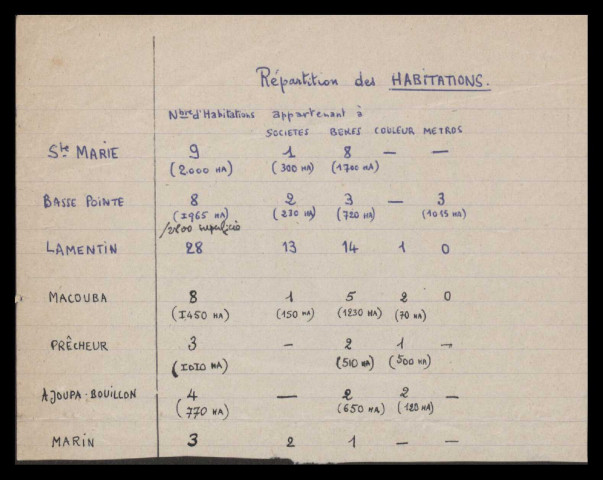 Répartition des HABITATIONS.
Nbre d'Habitations appartenant à
SOCIETES BEKES COULEUR METROS
Ste MARIE 9 1 8 — —
(2000 HA) (300 HA) (1700 HA)
BASSE POINTE 8 2 3 — 3
(1965 HA) (230 HA) (720 HA) (1015 HA)
LAMENTIN 28 13 14 1 0
MACOUBA 8 1 5 2 0
(1450 HA) (150 HA) (1230 HA) (70 HA)
PRÊCHEUR 3 — 2 1 —
(1010 HA) (510 HA) (500 HA)
AJOUPA-BOUILLON 4 — 2 2 —
(770 HA) (650 HA) (120 HA)
MARIN 3 2 1 — —